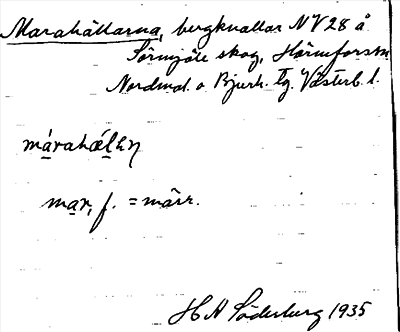 Marahällarna, bergknallar NV 28 å
Sörmjöle skog, Hörneforsen
Nordmal. o Bjurh. tg. Västerb. l.
márahä́lèn
mar, f. = märr.
H N Söderburg 1935